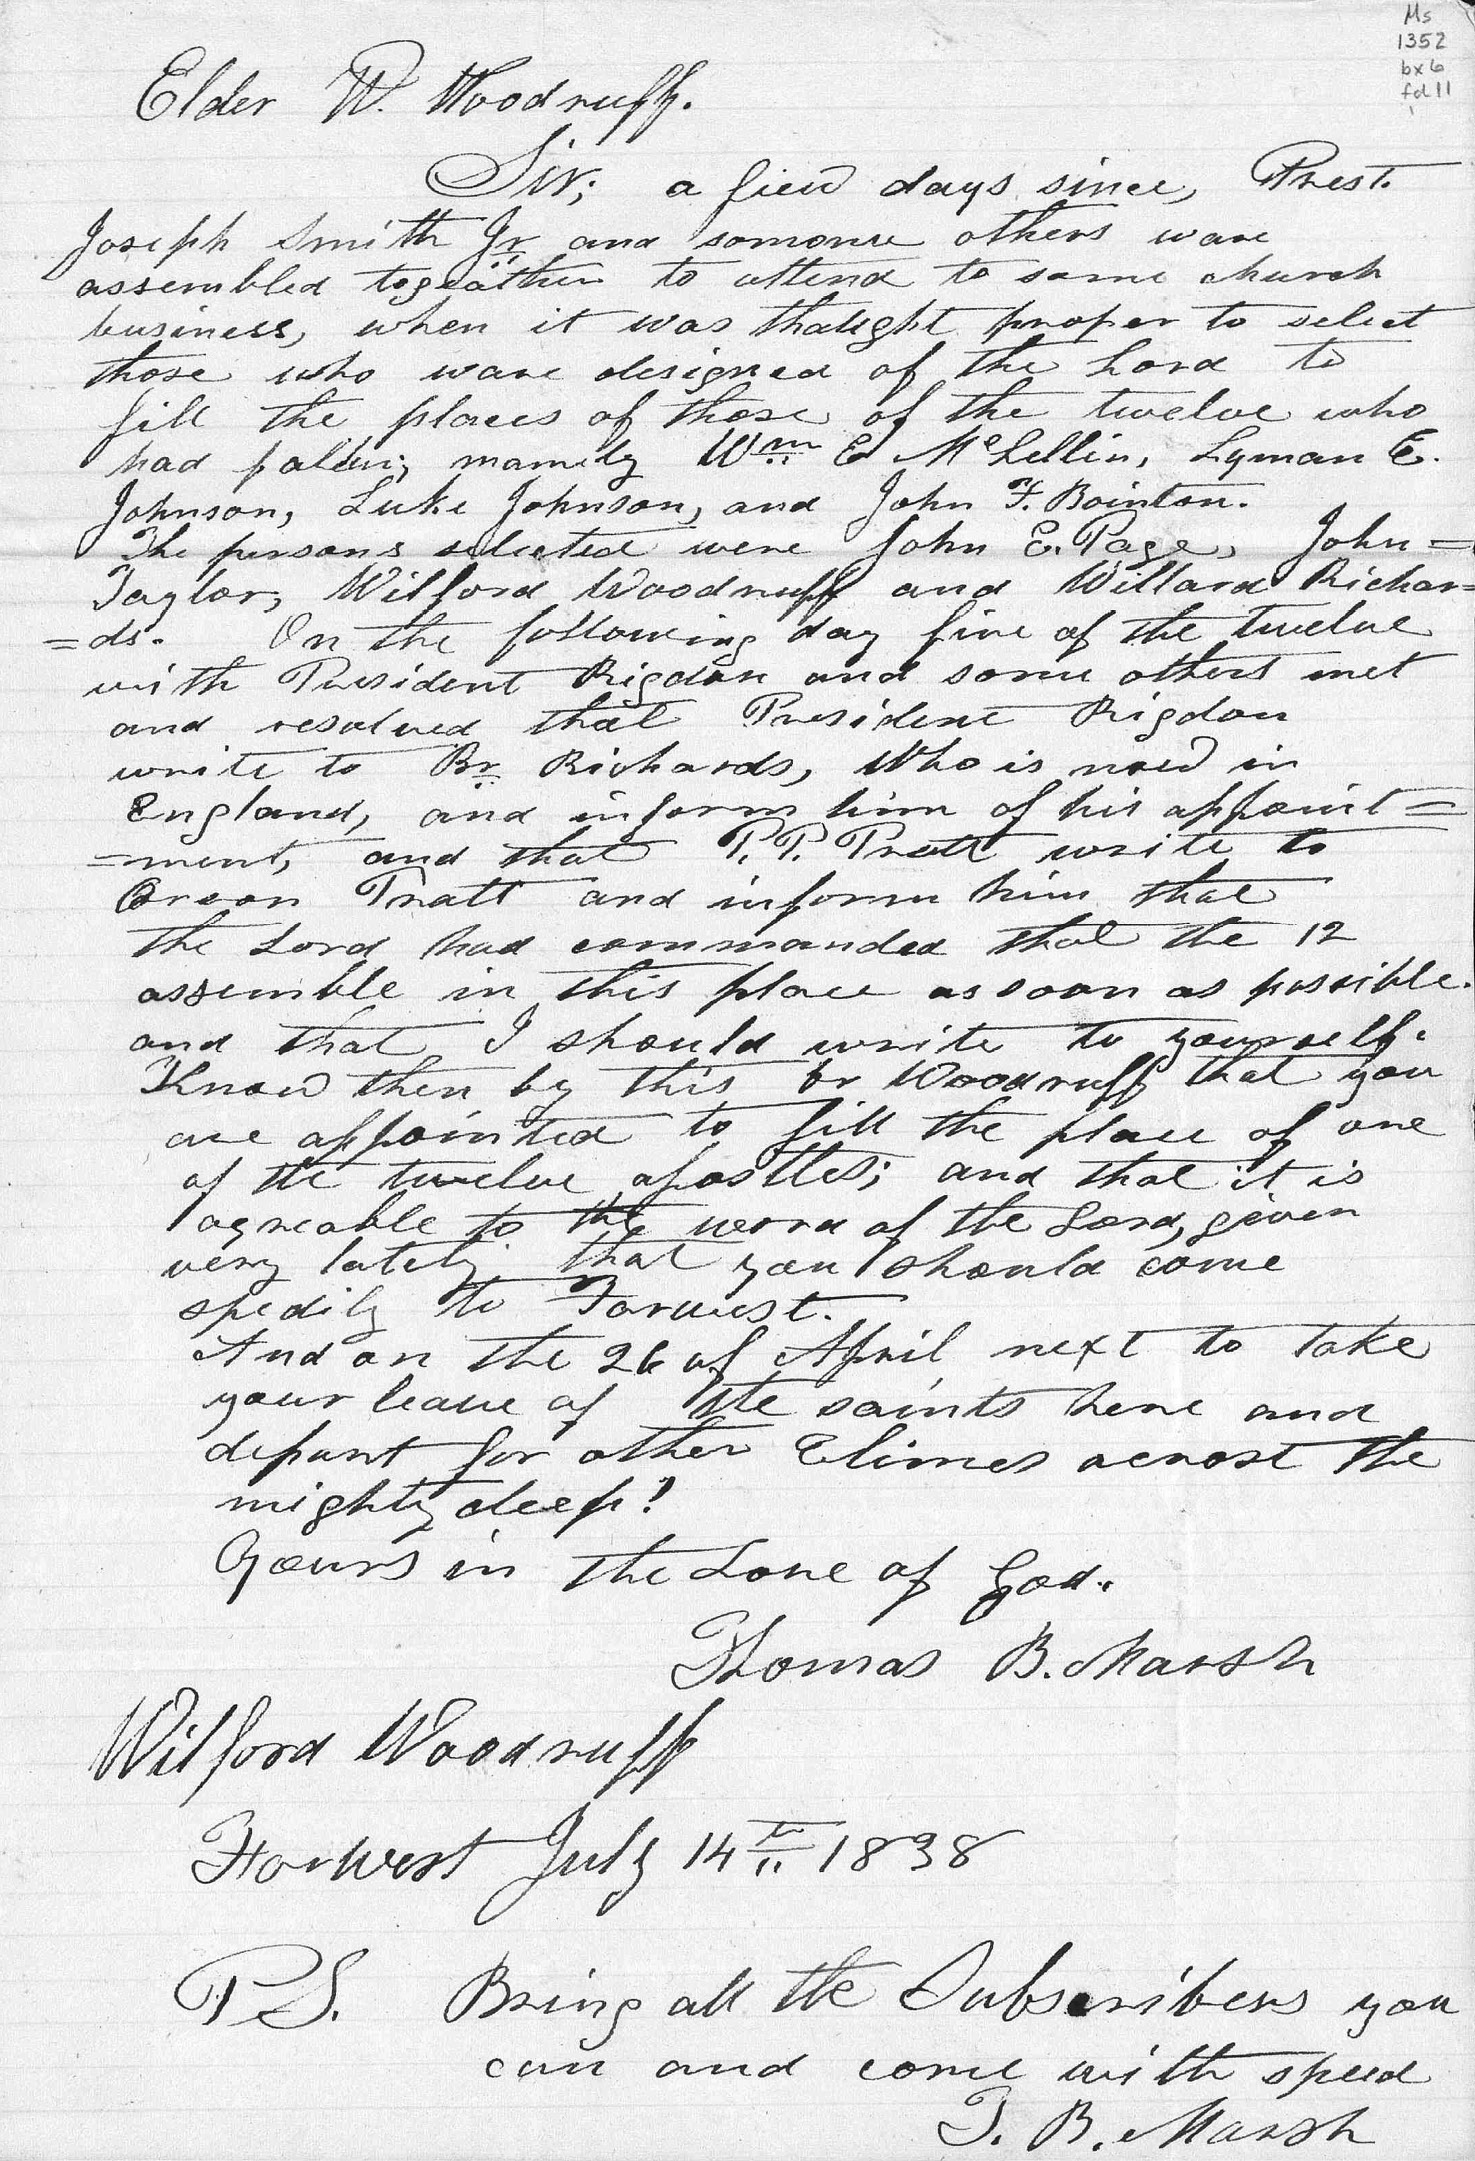 Ms
1352
bx 6
fd 11
Elder W. Woodruff.
Sir; a fiew days since, Prest.
Joseph Smith Jr and somonie others ware
assembled togeather to attend to some church
business, when it was thaught proper to select
those who ware designed of the Lord to
fill the places of those of the twelve who
had falen; namely Wm E McLellin, Lyman E.
Johnson, Luke Johnson, and John F. Bointon.
The persons selected were John E. Page, John =
Taylor, Wilford Woodruff and Willard Richar=
=ds. On the following day five of the twelve
with President Rigdon and some others met
and resolved that President Rigdon
write to Br Richards, Who is now in
England, and inform him of his appoint=
=ment, and that P. P. Pratt write to
Orson Pratt and inform him that
the Lord had commanded that the 12
assemble in this place as soon as possible.
and that I should write to yourself.
Know then by this br Woodruff that you
are appointed to fill the place of one
of the twelve apostles; and that it is
agreable to the word of the Lord, given
very lately that you should come
spedily to Farwest.
And on the 26 of April next to take
your leave of the saints here and
depart for other Climes acrost the
mighty deep!
Yours in the Love of God.
Thomas B. Marsh
Wilford Woodruff
Farwest July 14th 1838
P S. Bring all the Subscribers you
can and come with speed
T. B. Marsh